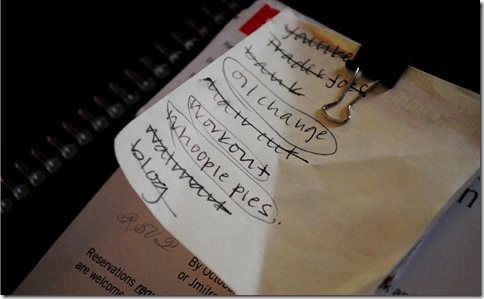 trader joe's
bank
oil change
haircut
workout
whoopie pies.
walmart
blog
RSVP
By Octob
Reservations req
or Jmilr
are welcome
n